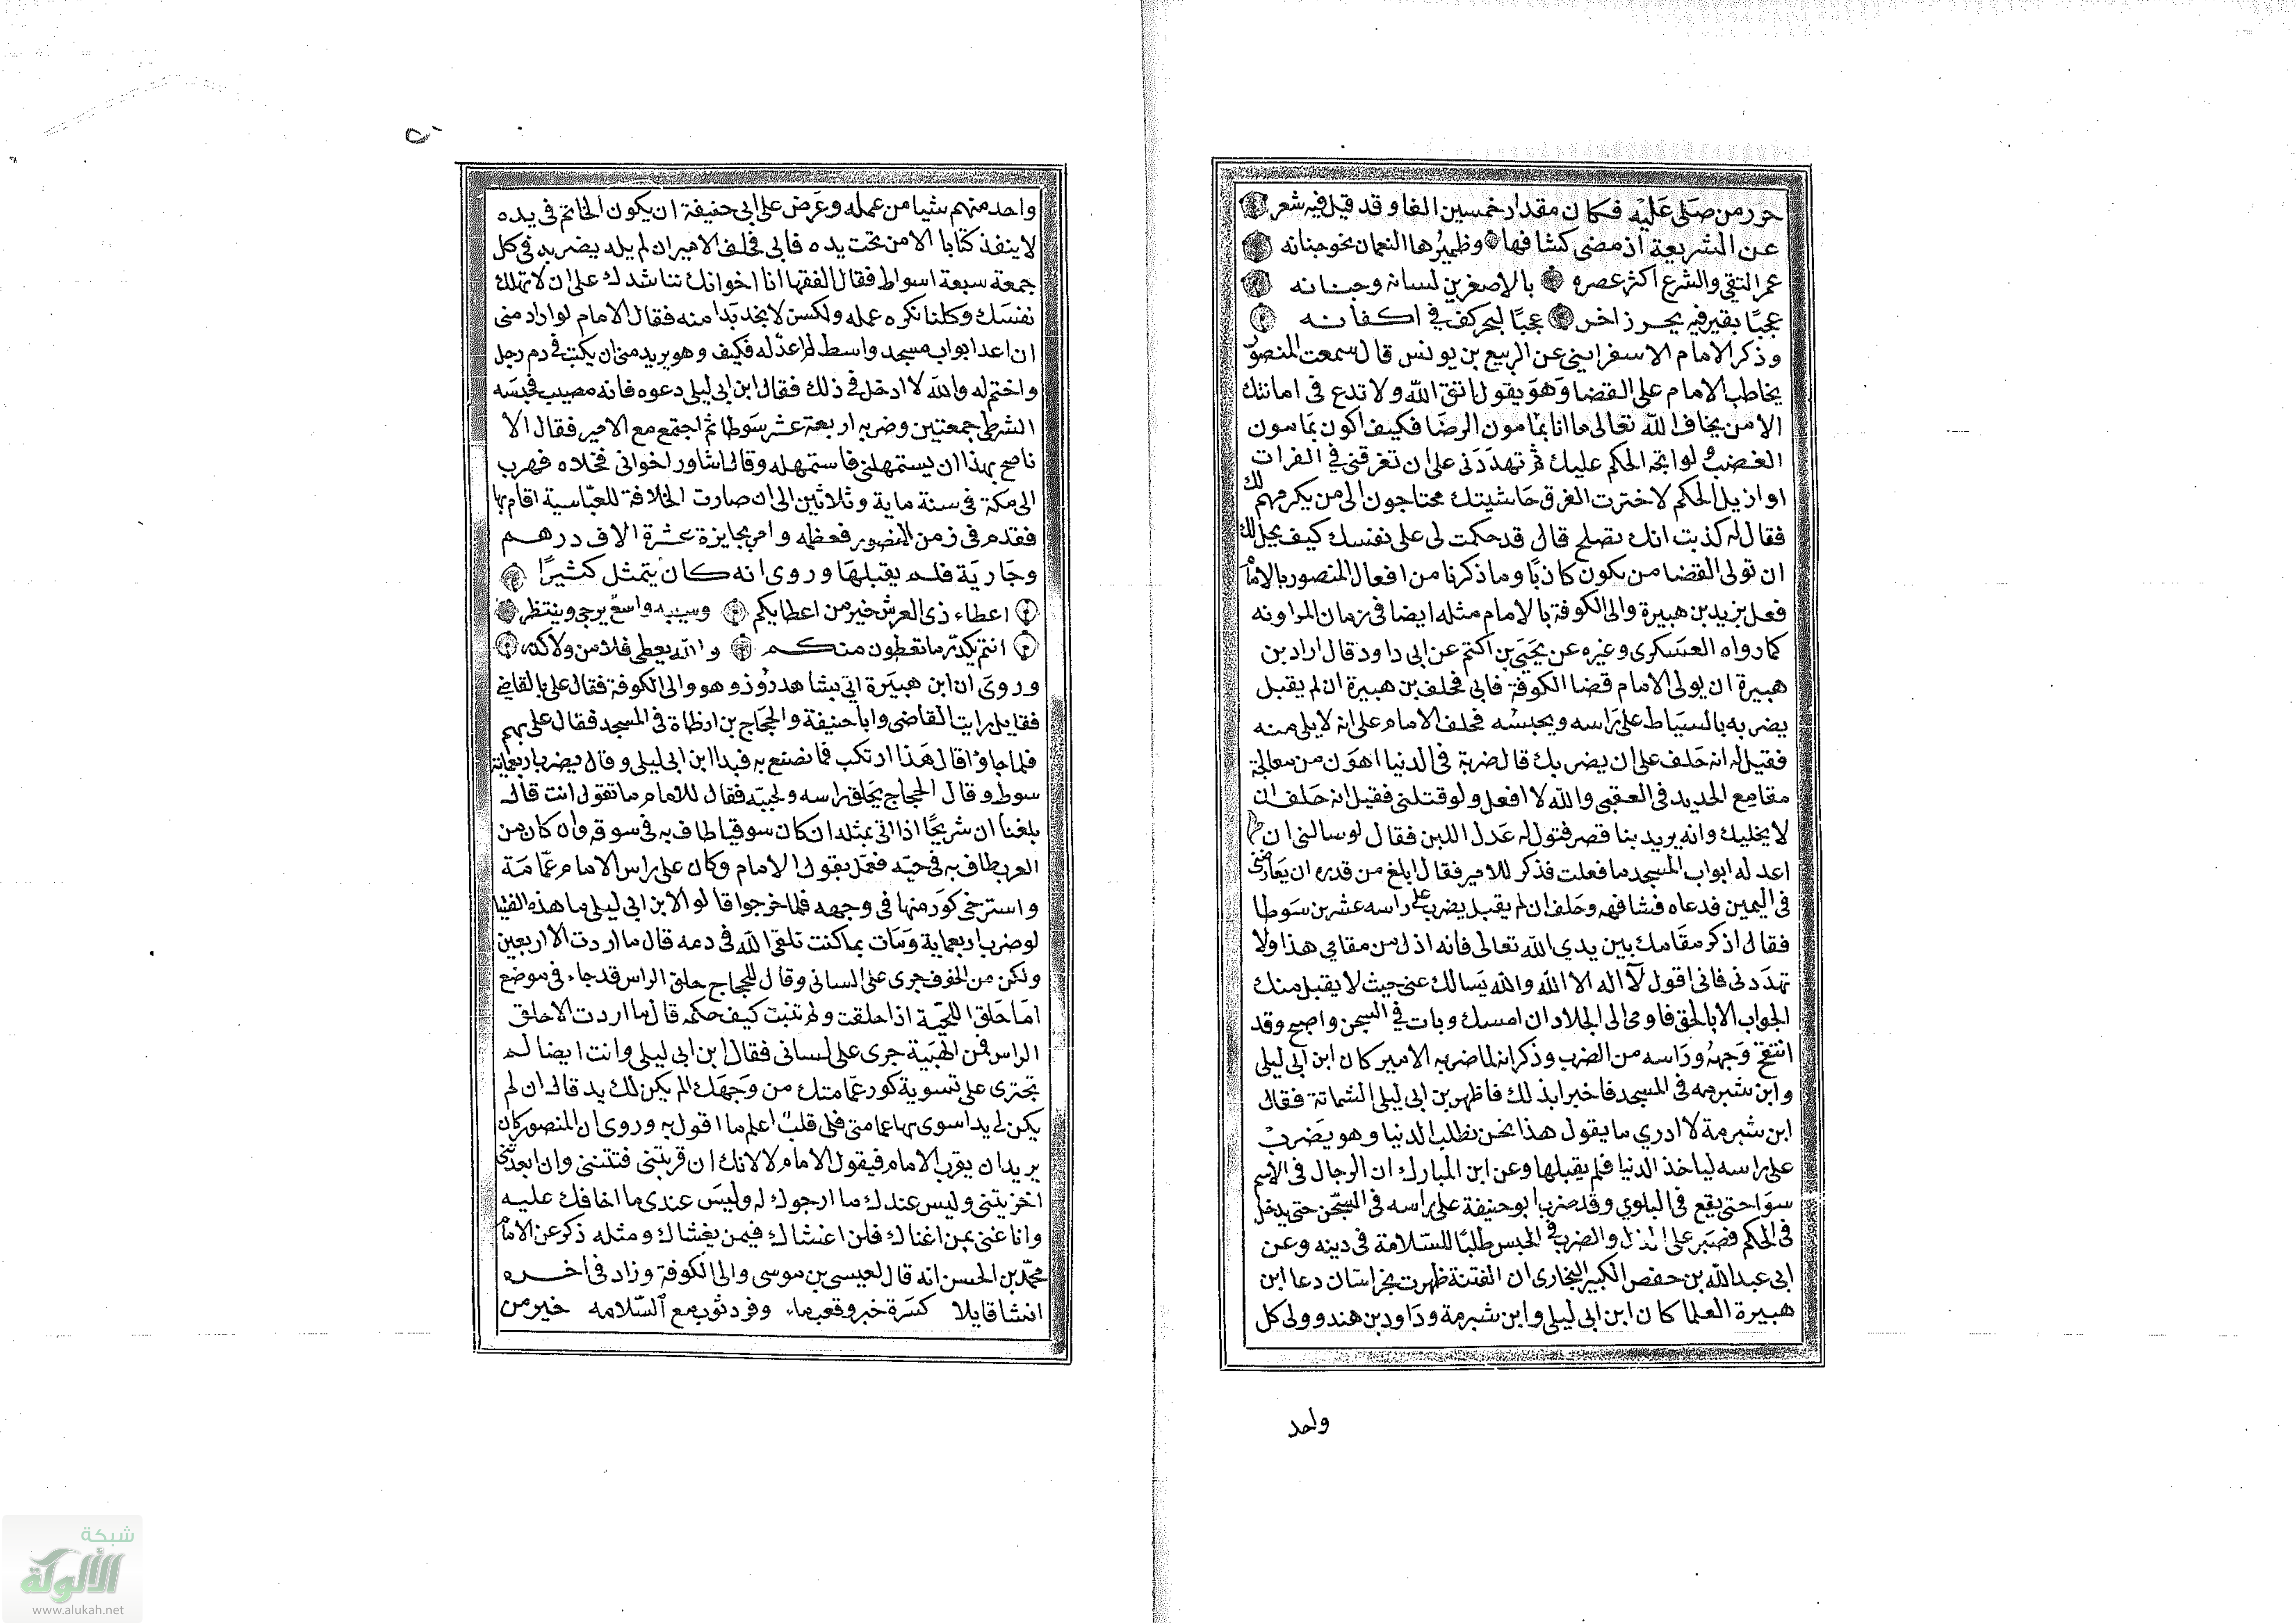 حرر من صلى عليه فكان مقدار خمسين الفا وقد قيل فيه شعر
عن الشريعة اذ مضى كشافها وظهيرها النعمان نحو جنانه
عمر التقي والشرع اكثر عصره بالاصغرين لسانه وجنانه
عجبًا بقبر فيه بحر زاخر عجبًا لبحر كف في اكفانه
وذكر الامام الاسفرايني عن الربيع بن يونس قال سمعت المنصور
يخاطب الامام على القضا وهو يقول اتق الله ولا تدع في امانتك
الا من يخاف الله تعالى ما انا بمامون الرضا فكيف اكون بمامون
الغضب ولو اتجه الحكم عليك ثم تهددنى على ان تغرقنى في الفرات
او ازيل الحكم لاخترت الغرق حاشيتك محتاجون الى من يكرمهم لك
فقال له كذبت انك تصلح قال قد حكمت لى على نفسك كيف يحل لك
ان تولى القضا من يكون كاذبًا وما ذكرنا من افعال المنصور بالامام
فعل يزيد بن هبيرة والى الكوفة بالامام مثله ايضا فى زمان المروانه
كما رواه العسكرى وغيره عن يحيى بن اكثم عن ابى داود قال اراد بن
هبيرة ان يولى الامام قضا الكوفة فابى فحلف بن هبيرة ان لم يقبل
يضربه بالسياط على راسه ويحبسه فحلف الامام على انه لا يلى منه
فقيل له انه حلف على ان يضربك قال ضربة فى الدنيا اهون من معالجة
مقامع الحديد فى العقبى والله لا افعل ولو قتلنى فقيل انه حلف ان
لا يخليك وانه يريد بنا قصر فتول له عدل اللبن فقال لو سالنى ان
اعد له ابواب المسجد ما فعلت فذكر للامير فقال ابلغ من قدره ان يعارضنى
فى اليمين فدعاه فشافهه وحلف ان لم يقبل يضرب على راسه عشرين سوطا
فقال اذكر مقامك بين يدي الله تعالى فانه اذل من مقامي هذا ولا
تهددنى فانى اقول لا اله الا الله والله يسالك عنى حيث لا يقبل منك
الجواب الا بالحق فاومى الى الجلاد ان امسك وبات في السجن واصبح وقد
انتفخ وجهه وراسه من الضرب وذكر انه لما ضربه الامير كان ابن ابى ليلى
وابن شبرمه فى المسجد فاخبرا بذلك فاظهر بن ابى ليلى الشماتة فقال
ابن شبرمة لا ادري ما يقول هذا نحن نطلب الدنيا وهو يضرب
على راسه لياخذ الدنيا فلم يقبلها وعن ابن المبارك ان الرجال فى الاسم
سوا حتى يقع فى البلوي وقد ضرب ابو حنيفة على راسه فى السجن حتى يدخل
فى الحكم فصبر على الذل والضرب في الحبس طلبًا للسلامة فى دينه وعن
ابى عبد الله بن حفص الكبير البخارى ان الفتنة ظهرت بخراسان دعا ابن
هبيرة العلما كان ابن ابى ليلى وابن شبرمة وداود بن هند وولى كل
واحد
واحد منهم شيا من عمله وعرض على ابى حنيفة ان يكون الخاتم فى يده
لا ينفذ كتابا الا من تحت يده فابى فحلف الامير ان لم يله يضربه فى كل
جمعة سبعة اسواط فقال الفقها انا اخوانك نناشدك على ان لا تهلك
نفسك وكلنا نكره عمله ولكن لا نجد بدا منه فقال الامام لو اراد منى
ان اعد ابواب مسجد واسط لم اعد له فكيف وهو يريد منى ان يكتب فى دم رجل
واختم له والله لا ادخل فى ذلك فقال ابن ابى ليلى دعوه فانه مصيب فحبسه
الشرطى جمعتين وضربه اربعة عشر سوطا ثم اجتمع مع الامير فقال الا
ناصح بهذا ان يستمهلنى فاستمهله وقال اشاور اخوانى فخلاه فهرب
الى مكة فى سنة ماية وثلاثين الى ان صارت الخلافة للعباسية اقام بها
فقدم فى زمن المنصور فعظمه وامر بجايزة عشرة الاف درهم
وجارية فلم يقبلها وروى انه كان يتمثل كثيرًا
اعطاء ذى العرش خير من اعطايكم وسيبه واسع يرجى وينتظر
انتم يكدر ما تعطون منكم والله يعطى فلا من ولا كدر
وروى ان ابن هبيرة اتى بشاهد زور وهو والى الكوفة فقال على بالقاضى
فقايل رايت القاضى وابا حنيفة والحجاج بن ارطاة فى المسجد فقال على بهم
فلما جاؤا قال هذا ارتكب فما نصنع به فبدا ابن ابى ليلى وقال يضرب اربعماية
سوط وقال الحجاج يحلق راسه ولحيته فقال للامام ما تقول انت قال
بلغنا ان شريحًا اذا اتى بمثله ان كان سوقيا طاف به فى سوقه وان كان من
العرب طاف به فى حيه فعمل بقول الامام وكان على راس الامام عمامة
واسترخى كور منها فى وجهه فلما خرجوا قالوا لابن ابى ليلى ما هذه الفتيا
لو ضرب اربعماية ومات بما كنت تلقى الله فى دمه قال ما اردت الا اربعين
ولكن من الخوف جرى على لسانى وقال للحجاج حلق الراس قد جاء فى موضع
اما حلق اللحية اذا حلقت ولم تنبت كيف حكمه قال ما اردت الا حلق
الراس فمن الهيبة جرى على لسانى فقال ابن ابى ليلى وانت ايضا لم
تجترى على تسوية كور عمامتك من وجهك الم يكن لك يد قال ان لم
يكن لى يد اسوى بها عمامتى فلى قلب اعلم ما اقول به وروى ان المنصور كان
يريد ان يقرب الامام فيقول الامام لا لانك ان قربتنى فتنتنى وان ابعدتنى
اخزيتنى وليس عندك ما ارجوك له وليس عندى ما اخافك عليه
وانا غنى بمن اغناك فلن اغشاك فيمن يغشاك ومثله ذكر عن الامام
محمد بن الحسن انه قال لعيسى بن موسى والى الكوفة وزاد فى اخره
انشا قايلا كسرة خبز وقعب ماء وفرد ثوب مع السلامه خير من
شبكة
الألوكة
www.alukah.net